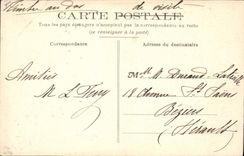 Timbre au dos de visite
CARTE POSTALE
Tous les pays étrangers n'acceptent pas la correspondance au recto
(se renseigner à la poste)
Correspondance
Adresse du destinataire
Amitiés
M L
M. M. Durand
18 Avenue St Saëns
Béziers
Hérault